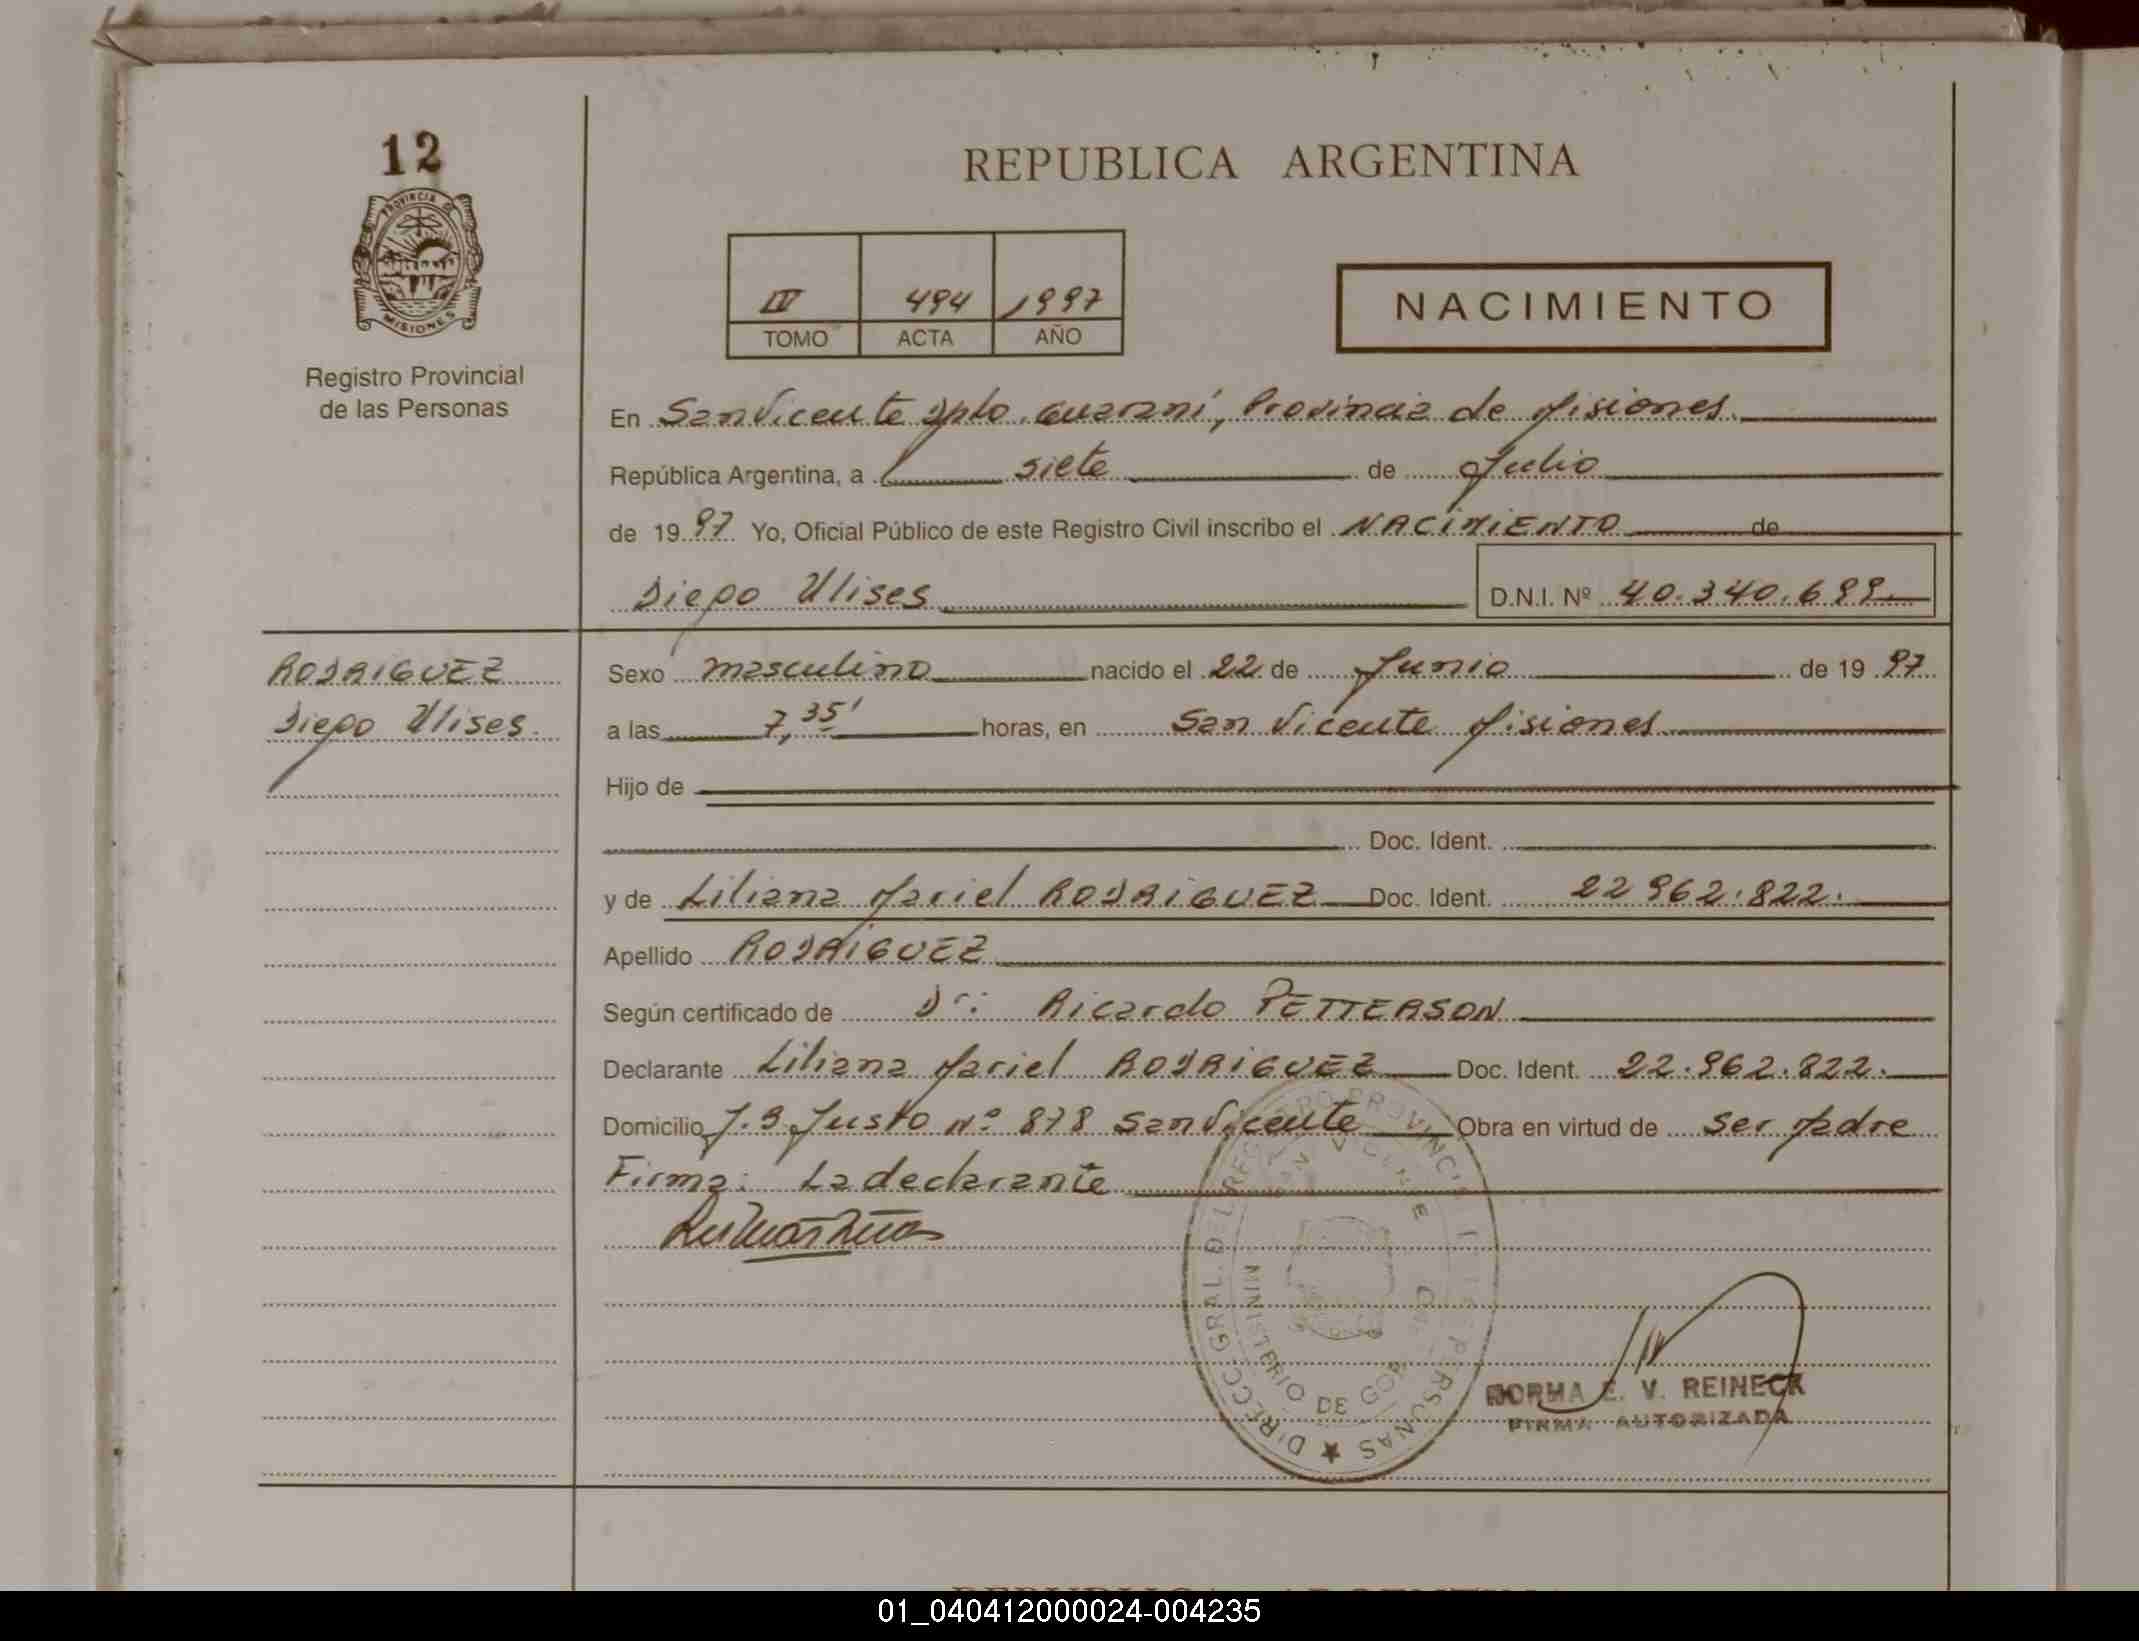 12
PROVINCIA DE
MISIONES
Registro Provincial
de las Personas
REPUBLICA ARGENTINA
IV 494 1997
TOMO ACTA AÑO
NACIMIENTO
En San Vicente Dpto. Guaraní, Provincia de Misiones.
República Argentina, a siete de Julio
de 1997 Yo, Oficial Público de este Registro Civil inscribo el NACIMIENTO de
Diego Ulises D.N.I. Nº 40.340.699.
RODRIGUEZ
Diego Ulises.
Sexo masculino nacido el 22 de Junio de 1997
a las 7,35' horas, en San Vicente Misiones
Hijo de
Doc. Ident.
y de Liliana Mariel RODRIGUEZ Doc. Ident. 22962.822.
Apellido RODRIGUEZ
Según certificado de Dr: Ricardo PETTERSON
Declarante Liliana Mariel RODRIGUEZ Doc. Ident. 22.962.822.
Domicilio J.B. Justo Nº 878 San Vicente Obra en virtud de ser Madre
Firma: La declarante
DIRECC. GRAL. DEL REGISTRO PROVINCIAL DE LAS PERSONAS
SAN VICENTE
MINISTERIO DE GOB.
NORMA E. V. REINECK
FIRMA AUTORIZADA
REPUBLICA ARGENTINA
01_040412000024-004235